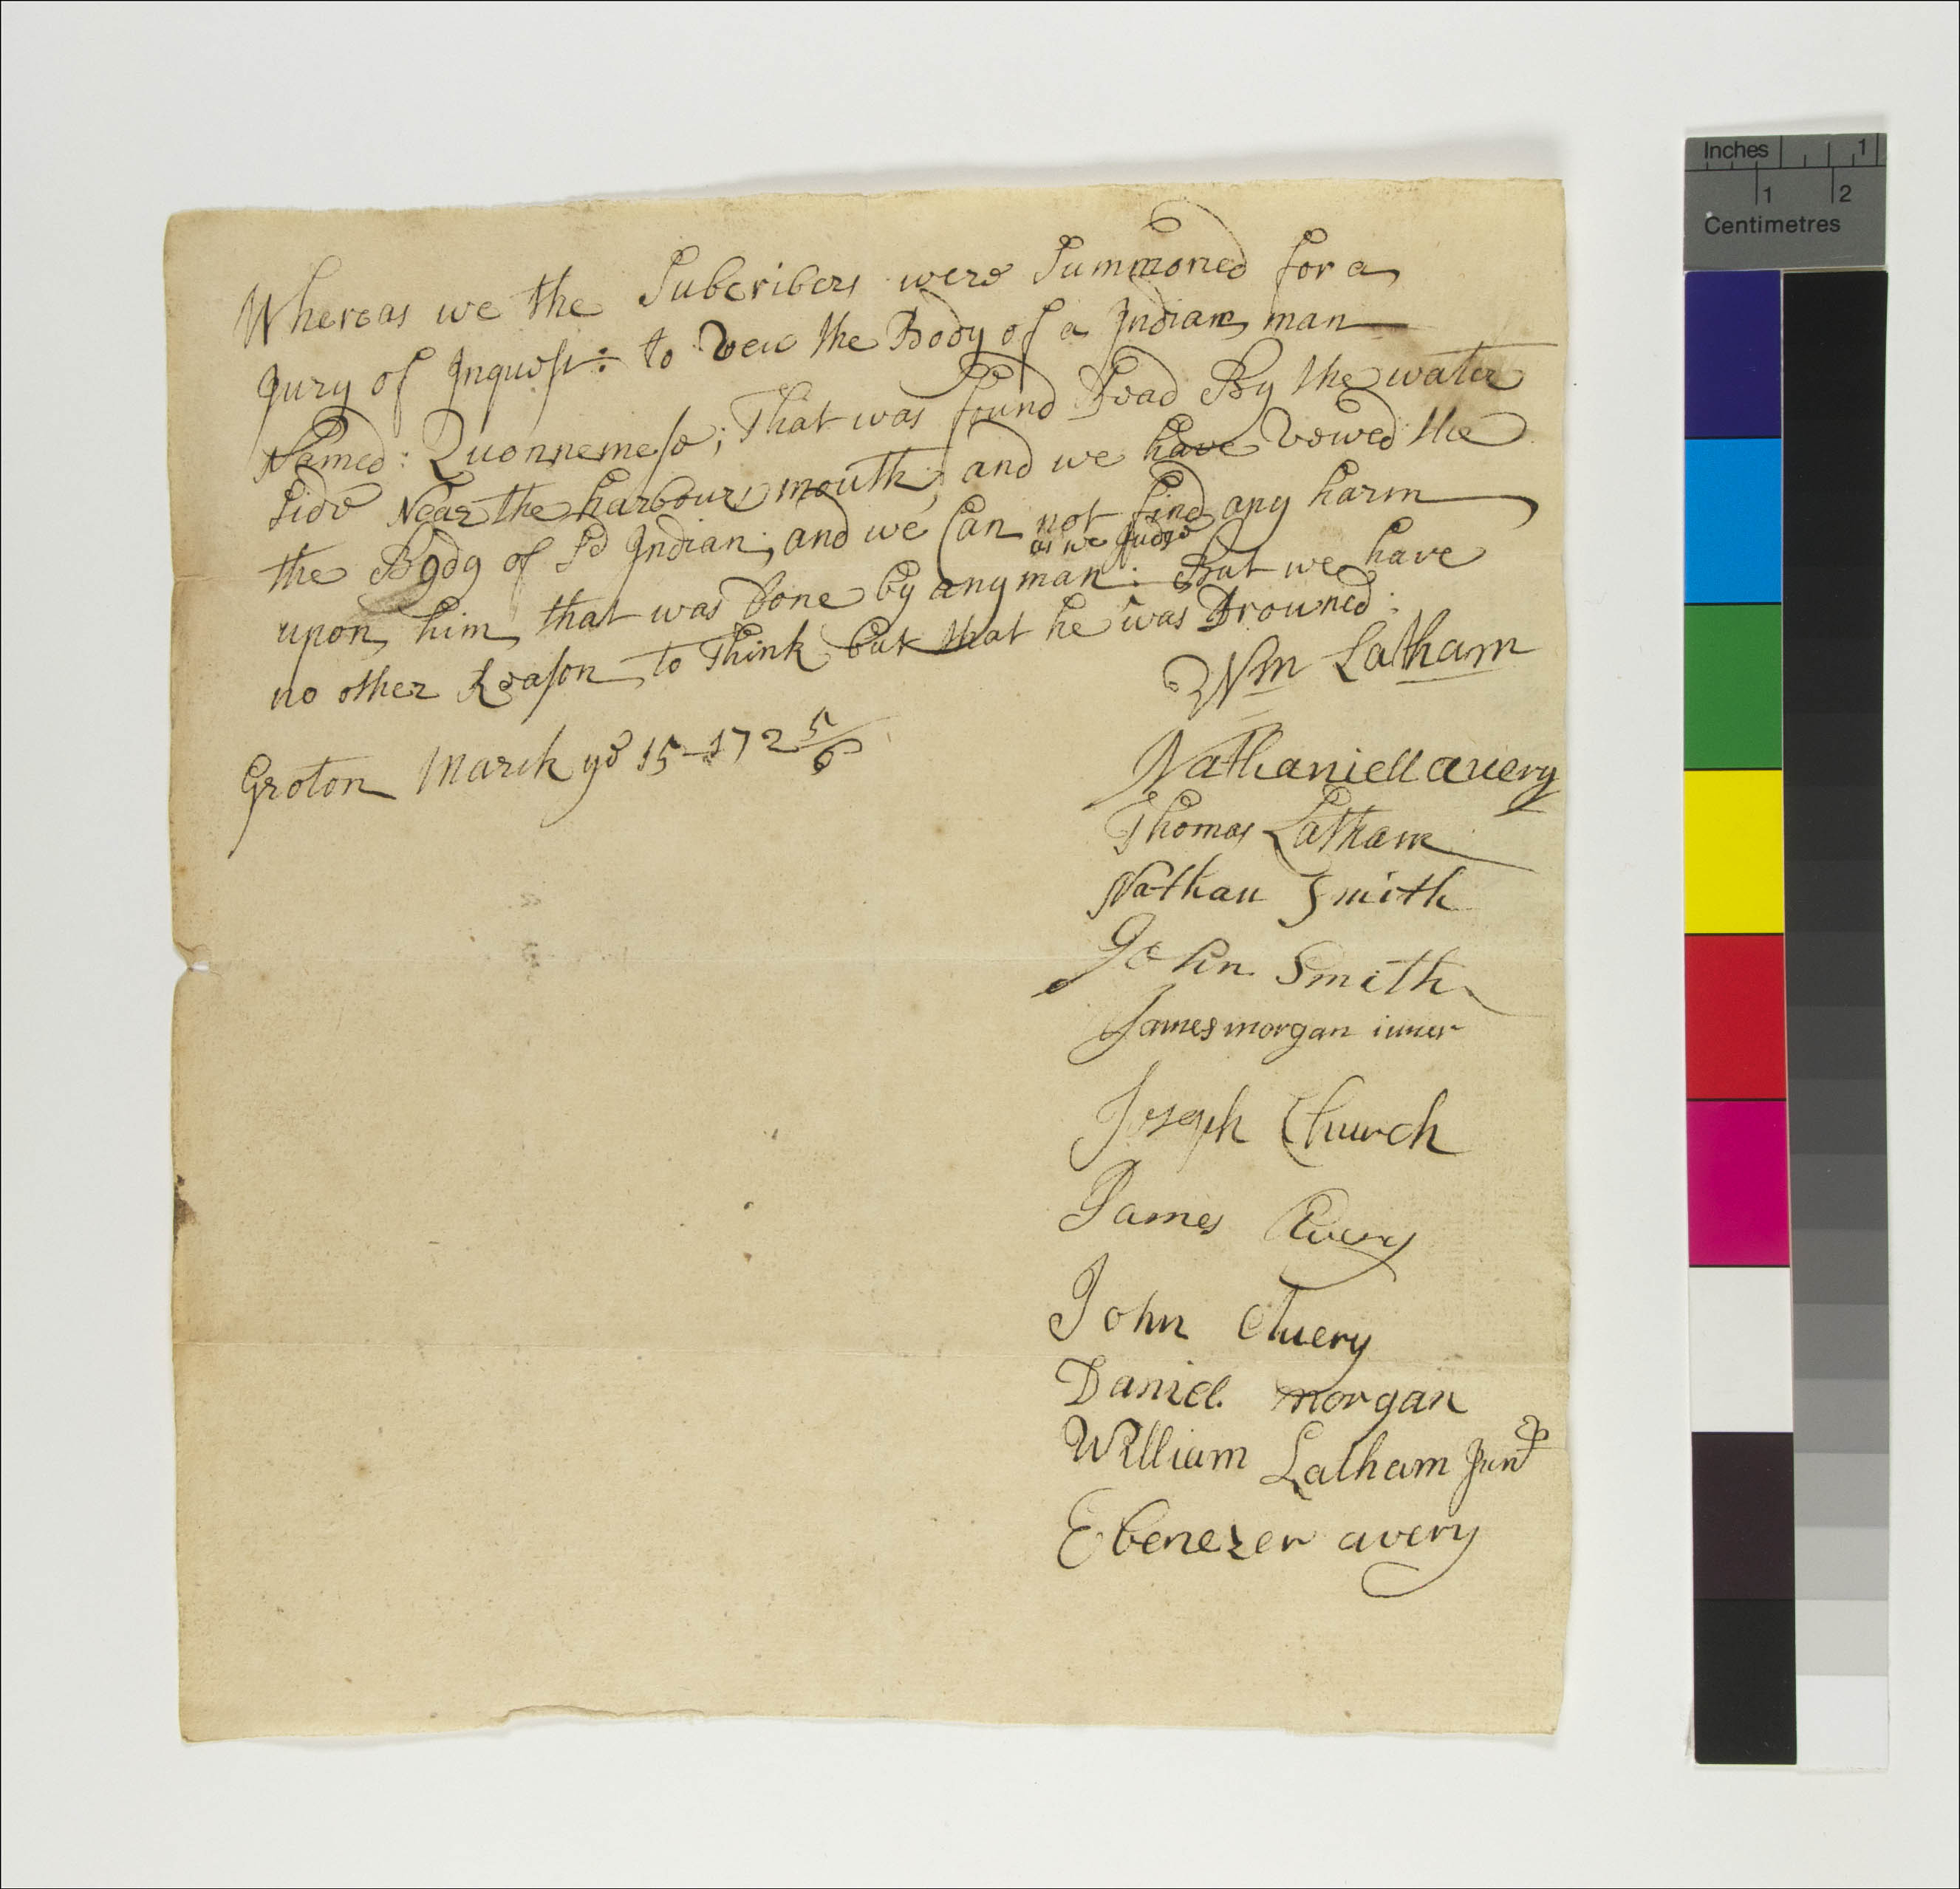 Inches 1
1 2
Centimetres
Whereas we the Subcribers were Summoned for a
Jury of Inquest: to vew the Body of a Indian man
Named: Quonnemese; That was found Dead By the water
side Near the harbour mouth; and we have vewed the
the Body of sd Indian; and we Can not find any harm
as we Judge
upon him that was done by any man: But we have
no other Reason to Think but that he was Drowned:
Groton March ye 15-172 5/6
Wm Latham
Nathaniell avery
Thomas Latham
Nathan Smith
John Smith
James morgan iuner
Joseph Church
James Avery
John Avery
Daniel morgan
William Latham Junr
Ebenezer avery